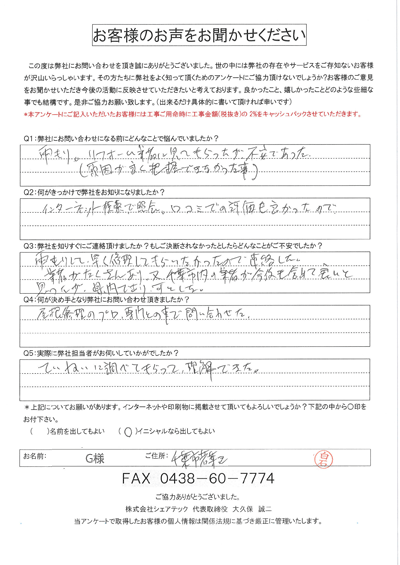 お客様のお声をお聞かせください
この度は弊社にお問い合わせを頂き誠にありがとうございました。世の中には弊社の存在やサービスをご存知ないお客様
が沢山いらっしゃいます。その方たちに弊社をよく知って頂くためのアンケートにご協力頂けないでしょうか？お客様のご意見
をお聞かせいただき今後の活動に反映させていただきたいと考えております。良かったこと、嬉しかったことどのような些細な
事でも結構です。是非ご協力お願い致します。(出来るだけ具体的に書いて頂ければ幸いです)
*本アンケートにご記入いただいたお客様には工事ご用命時に工事金額(税抜き)の2%をキャッシュバックさせていただきます。
Q1:弊社にお問い合わせになる前にどんなことで悩んでいましたか？
雨もり。リフォーム業者に見てもらったが、不安であった
(原因が良く把握できなかった事)
Q2:何がきっかけで弊社をお知りになりましたか？
インターネット検索で照会。口コミでの評価も良かったので
Q3:弊社を知りすぐにご連絡頂けましたか？もしご決断されなかったとしたらどんなことがご不安でしたか？
雨もりして、早く修理してもらいたかったので連絡した。
業者がたくさんあり、又千葉市内の業者が今後も含めて良いと
思ったが、県内でありすとした。
Q4:何が決め手となり弊社にお問い合わせ頂きましたか？
屋根修理のプロ、専門との事で問い合わせた。
Q5:実際に弊社担当者がお伺いしていかがでしたか？
ていねいに調べてもらって、理解できた。
*上記についてお願いがあります。インターネットや印刷物に掲載させて頂いてもよろしいでしょうか？下記の中から○印を
お付下さい。
( )名前を出してもよい (○)イニシャルなら出してもよい
お名前: G様 ご住所: 千葉市若葉区
FAX 0438-60-7774
ご協力ありがとうございました。
株式会社シェアテック 代表取締役 大久保 誠二
当アンケートで取得したお客様の個人情報は関係法規に基づき厳正に管理いたします。